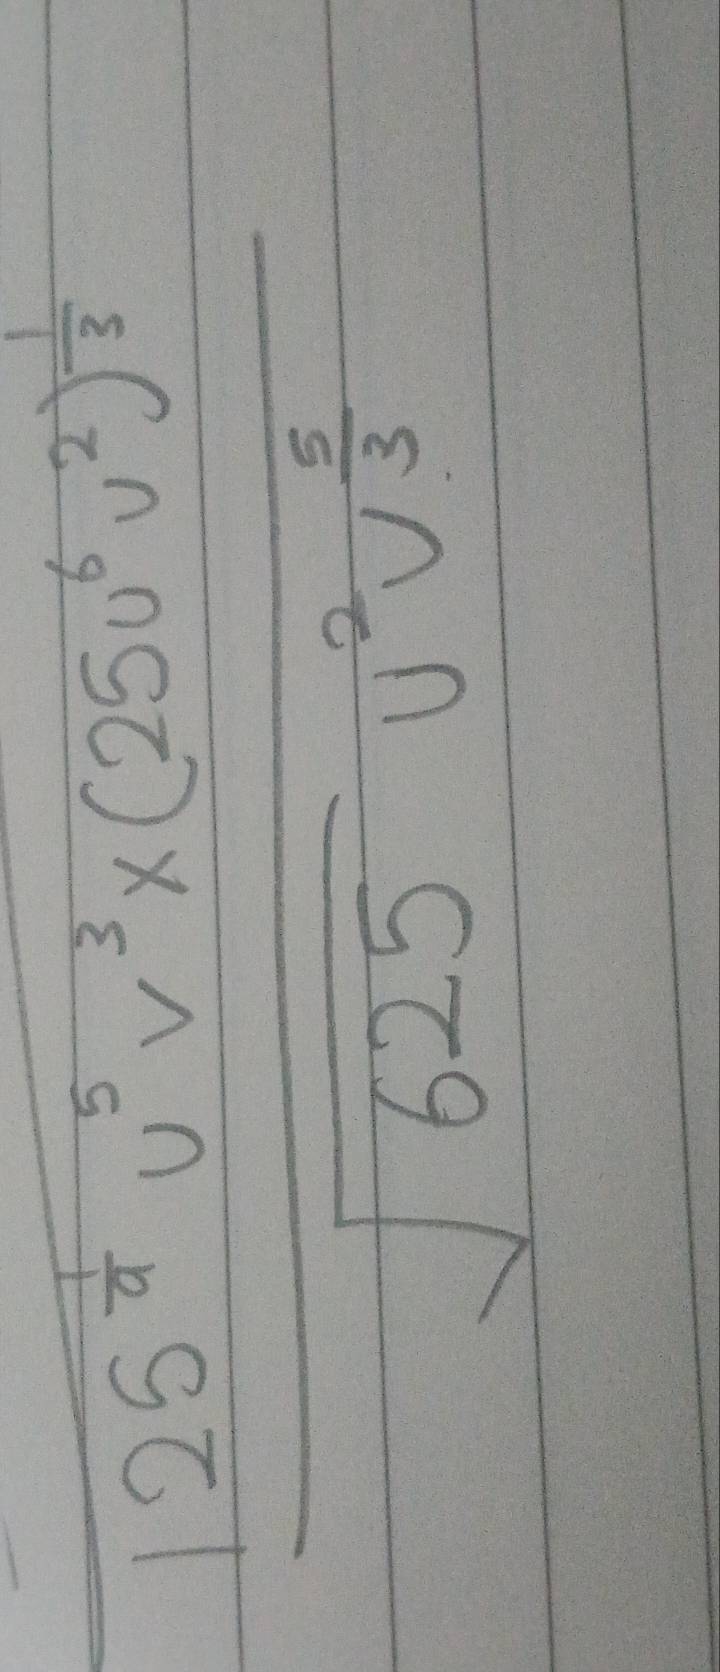 125^{\frac{1}{a}} u^5 v^3 × (25u^6 v^2)^{\frac{1}{3}}
√625 u^2 v^{\frac{5}{3}}.